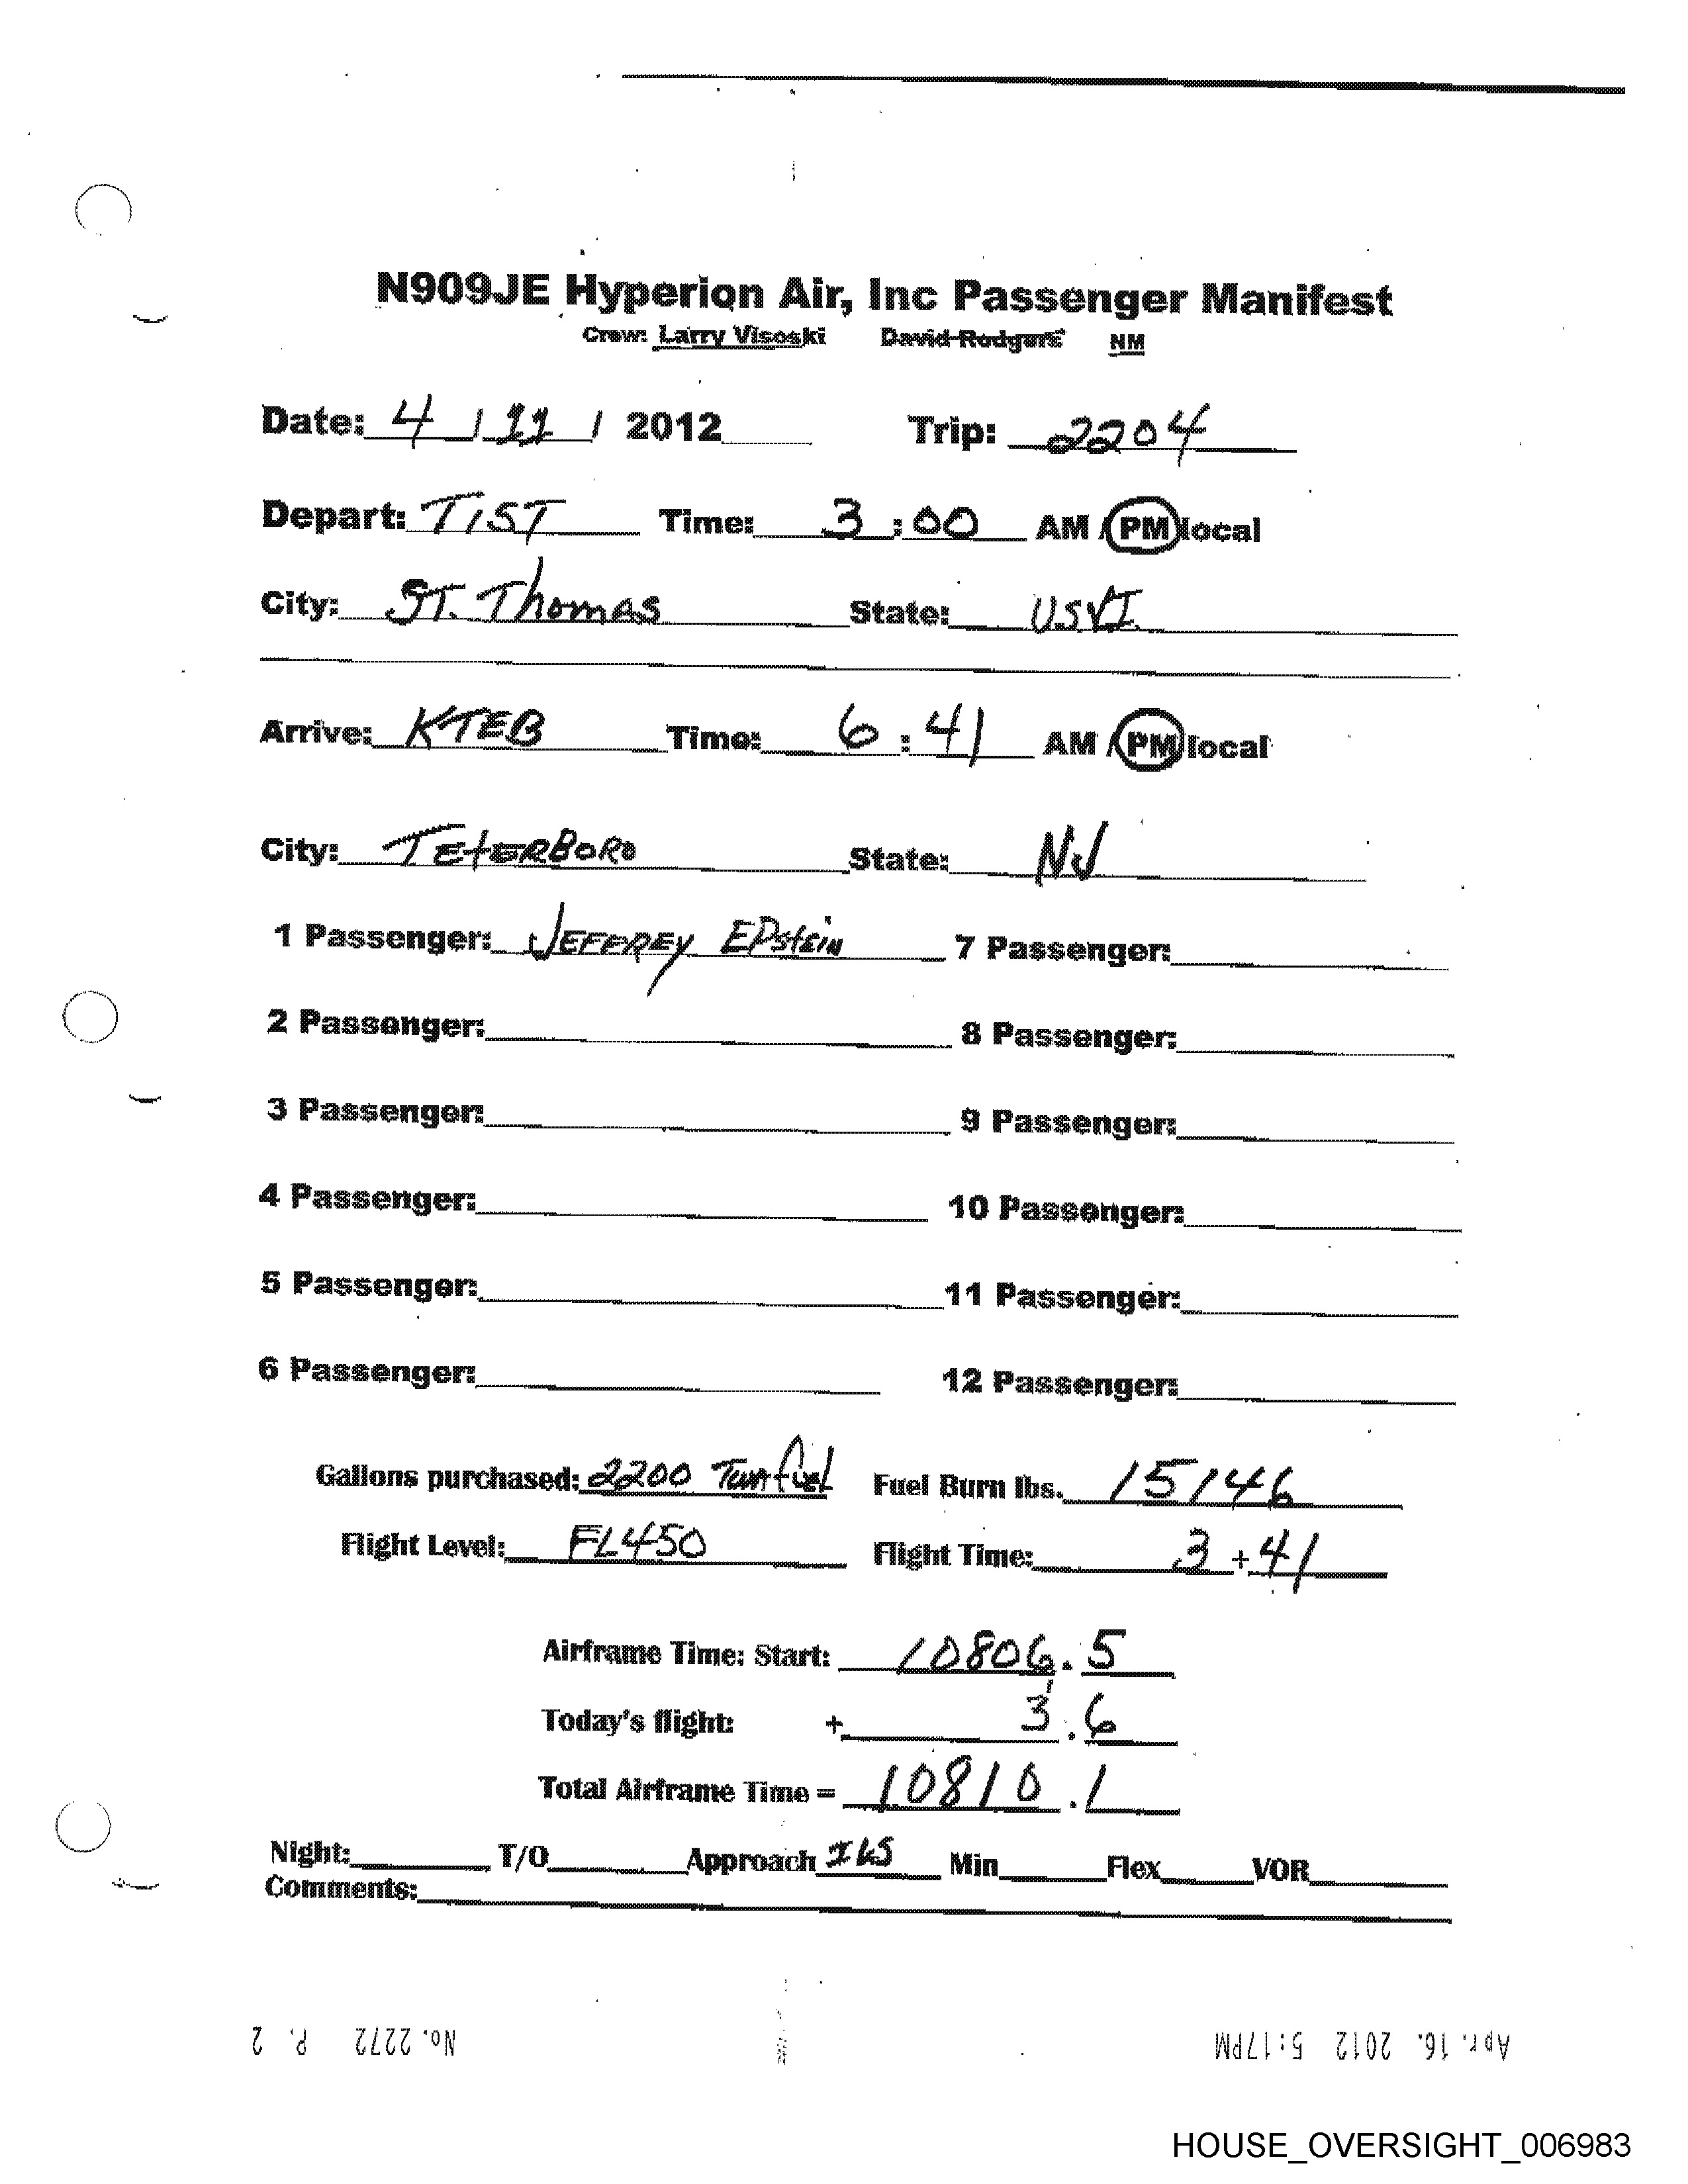 N909JE Hyperion Air, Inc Passenger Manifest
Crew: Larry Visoski David Rodgers NM
Date: 4 / 11 / 2012 Trip: 2204
Depart: TIST Time: 3 : 00 AM / PM local
City: ST. Thomas State: USVI
Arrive: KTEB Time: 6 : 41 AM / PM local
City: TETERBORO State: NJ
1 Passenger: JEFFREY EPstein 7 Passenger:
2 Passenger: 8 Passenger:
3 Passenger: 9 Passenger:
4 Passenger: 10 Passenger:
5 Passenger: 11 Passenger:
6 Passenger: 12 Passenger:
Gallons purchased: 2200 fuel Fuel Burn lbs. 15146
Flight Level: FL450 Flight Time: 3 + 41
Airframe Time: Start: 10806.5
Today's flight: + 3.6
Total Airframe Time = 10810.1
Night: T/O Approach ILS Min Flex VOR
Comments:
Apr. 16. 2012 5:17PM No. 2272 P. 2
HOUSE_OVERSIGHT_006983